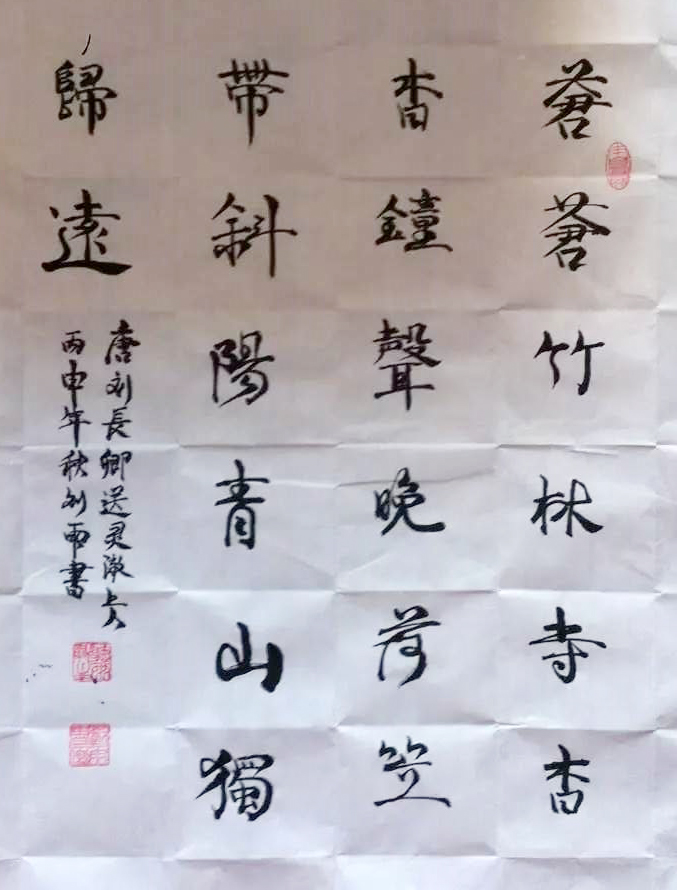 蒼蒼竹林寺杳
杳鐘聲晚荷笠
帶斜陽青山獨
歸遠
唐刘長卿送灵澈上人
丙申年秋刘雨書